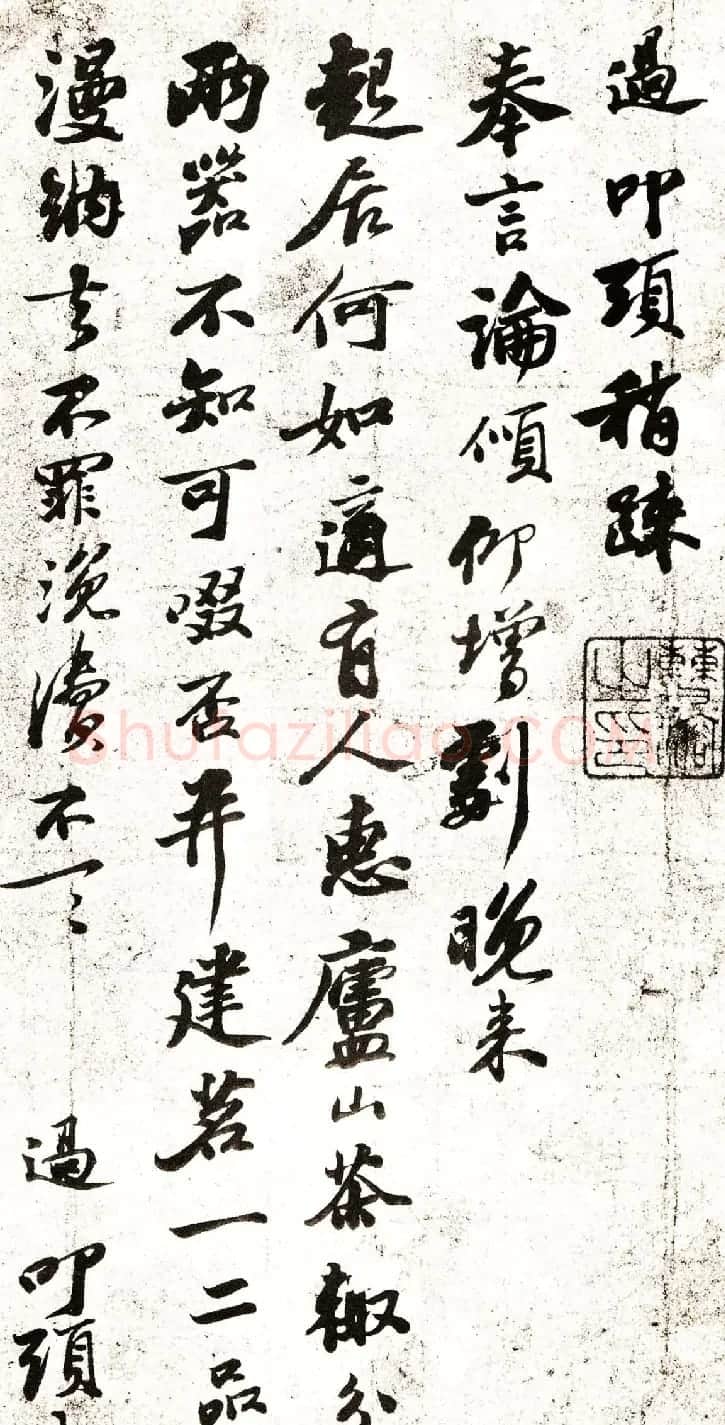 過叩頭稍踈
奉言論傾仰增劇晚来
起居何如適有人惠廬山茶輙分
兩器不知可啜否并建茗一二品
漫納去不罪浼瀆不一一 過叩頭
Shufaziliao.COM